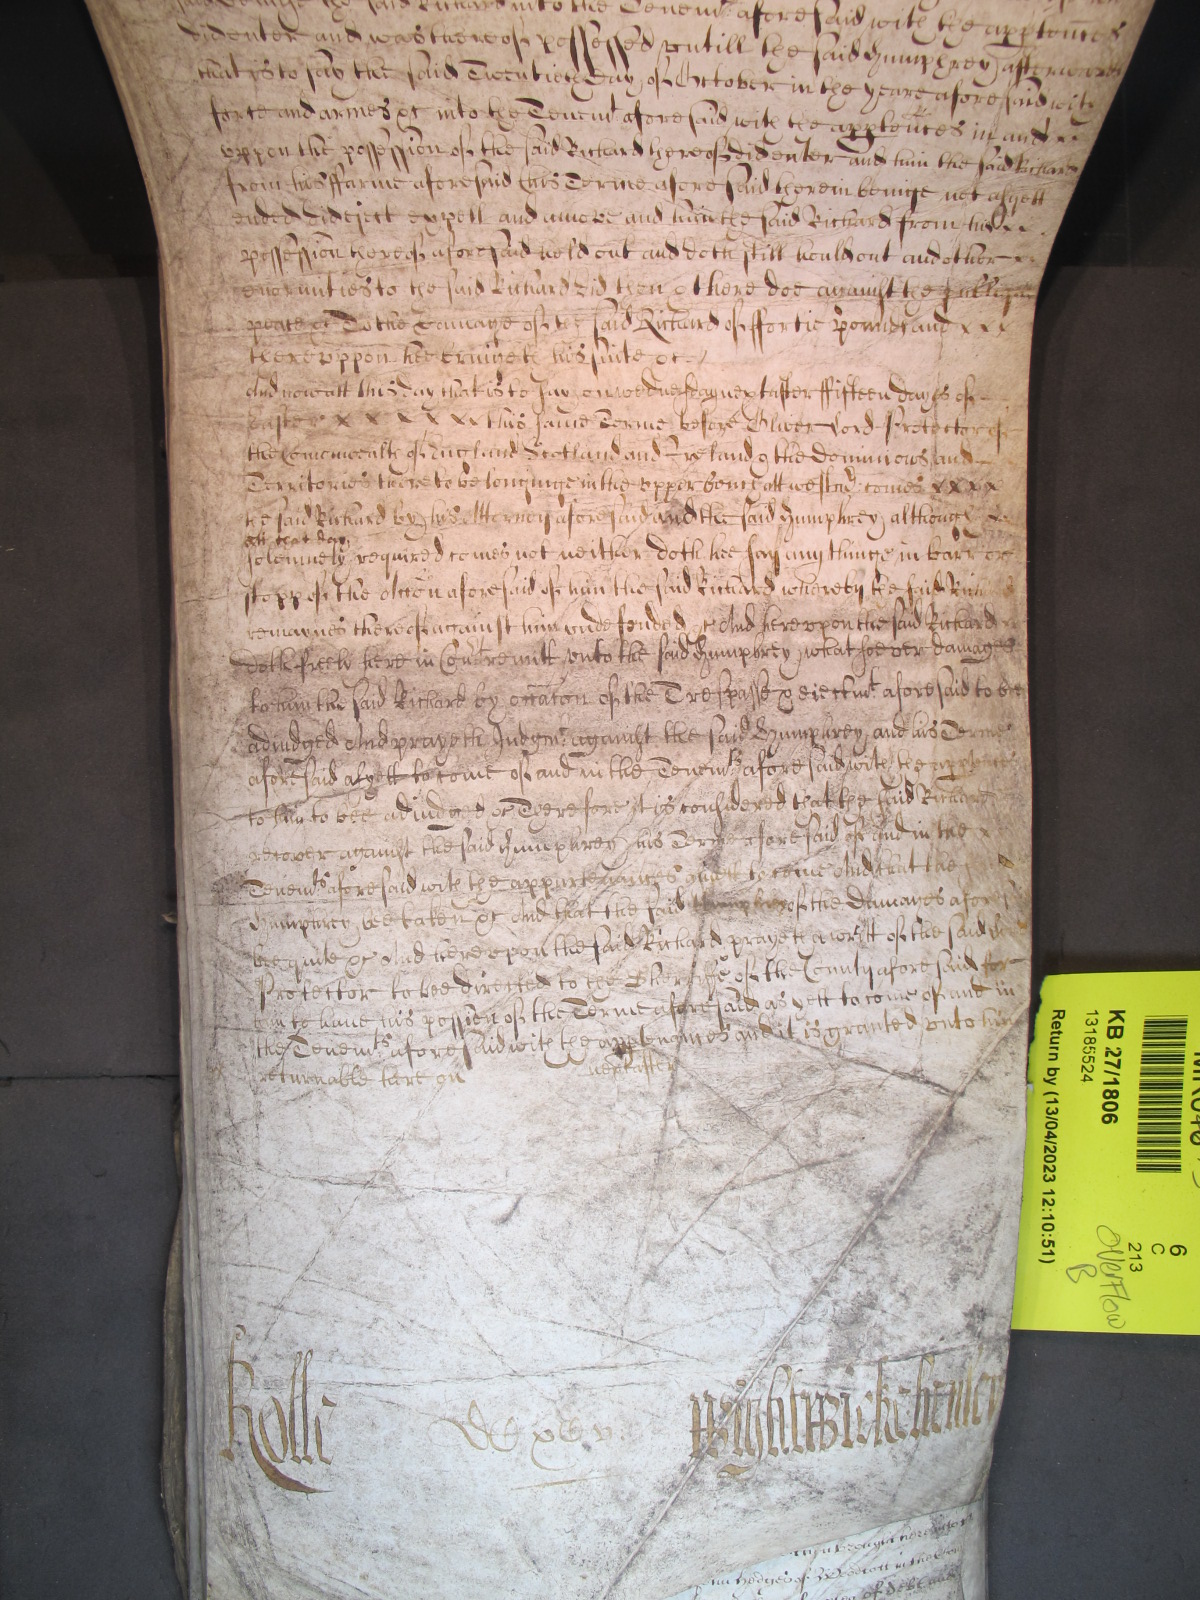 the said Richard into the Tenemts aforesaid with the apptences
did enter and was thereof possessed untill the said Humphrey afterwards
that is to say the said Twentieth day of October in the yeare aforesaid with
force and armes &c into the Tenemts aforesaid with the apptences in and
uppon the possession of the said Richard thereof did enter and him the said Richard
from his ffarme aforesaid his Terme aforesaid therein beinge not as yett
ended did eject expell and amove and him the said Richard from his
possession thereof aforesaid held out and doth still hould out and other
enormities to the said Richard did then & there doe against the publique
peace &c To the damage of the said Richard of ffortie pounds and x x x
thereuppon hee bringeth his suite &c
And now att this day that is to say on Wednesday next after ffifteen dayes of
Easter x x x x x x this same Terme before Oliver Lord Protector of
the Comonwealth of England Scotland and Ireland & the dominions and
Territories thereto belonginge in the upper bench att westmr comes x x x x
the said Richard by his Attorney aforesaid and the said Humphrey although
att that day
solemnely required comes not neither doth hee say any thinge in barr or
stopp of the accon aforesaid of him the said Richard whereby the said Richard
remaynes thereof against him undefended &c And hereupon the said Richard
doth freely here in Court remitt unto the said Humphrey whatsoever damages
to him the said Richard by occation of the Trespasse & ejectmt aforesaid to be
adjudged And prayeth Judgmt against the said Humphrey and his Terme
aforesaid as yett to come of and in the Tenemts aforesaid with the apptences
to him to bee adjudged &c Therefore it is considered that the said Richard
recover against the said Humphrey his Terme aforesaid of and in the x
Tenemts aforesaid with the appurtenances as yett to come And that the
Humphrey bee taken &c And that the said Humphrey of the damages afore
bee quite &c And hereupon the said Richard prayeth a writt of the said
Protector to bee directed to the Sheriffe of the County aforesaid for
him to have his possion of the Terme aforesaid as yett to come of and in
the Tenemts aforesaid with the apptenances and it is granted unto him
returnable here on next after
Rolle Wightwicke henley
KB 27/1806
13185524
Return by (13/04/2023 12:10:51)
6
C
213
Overflow
B